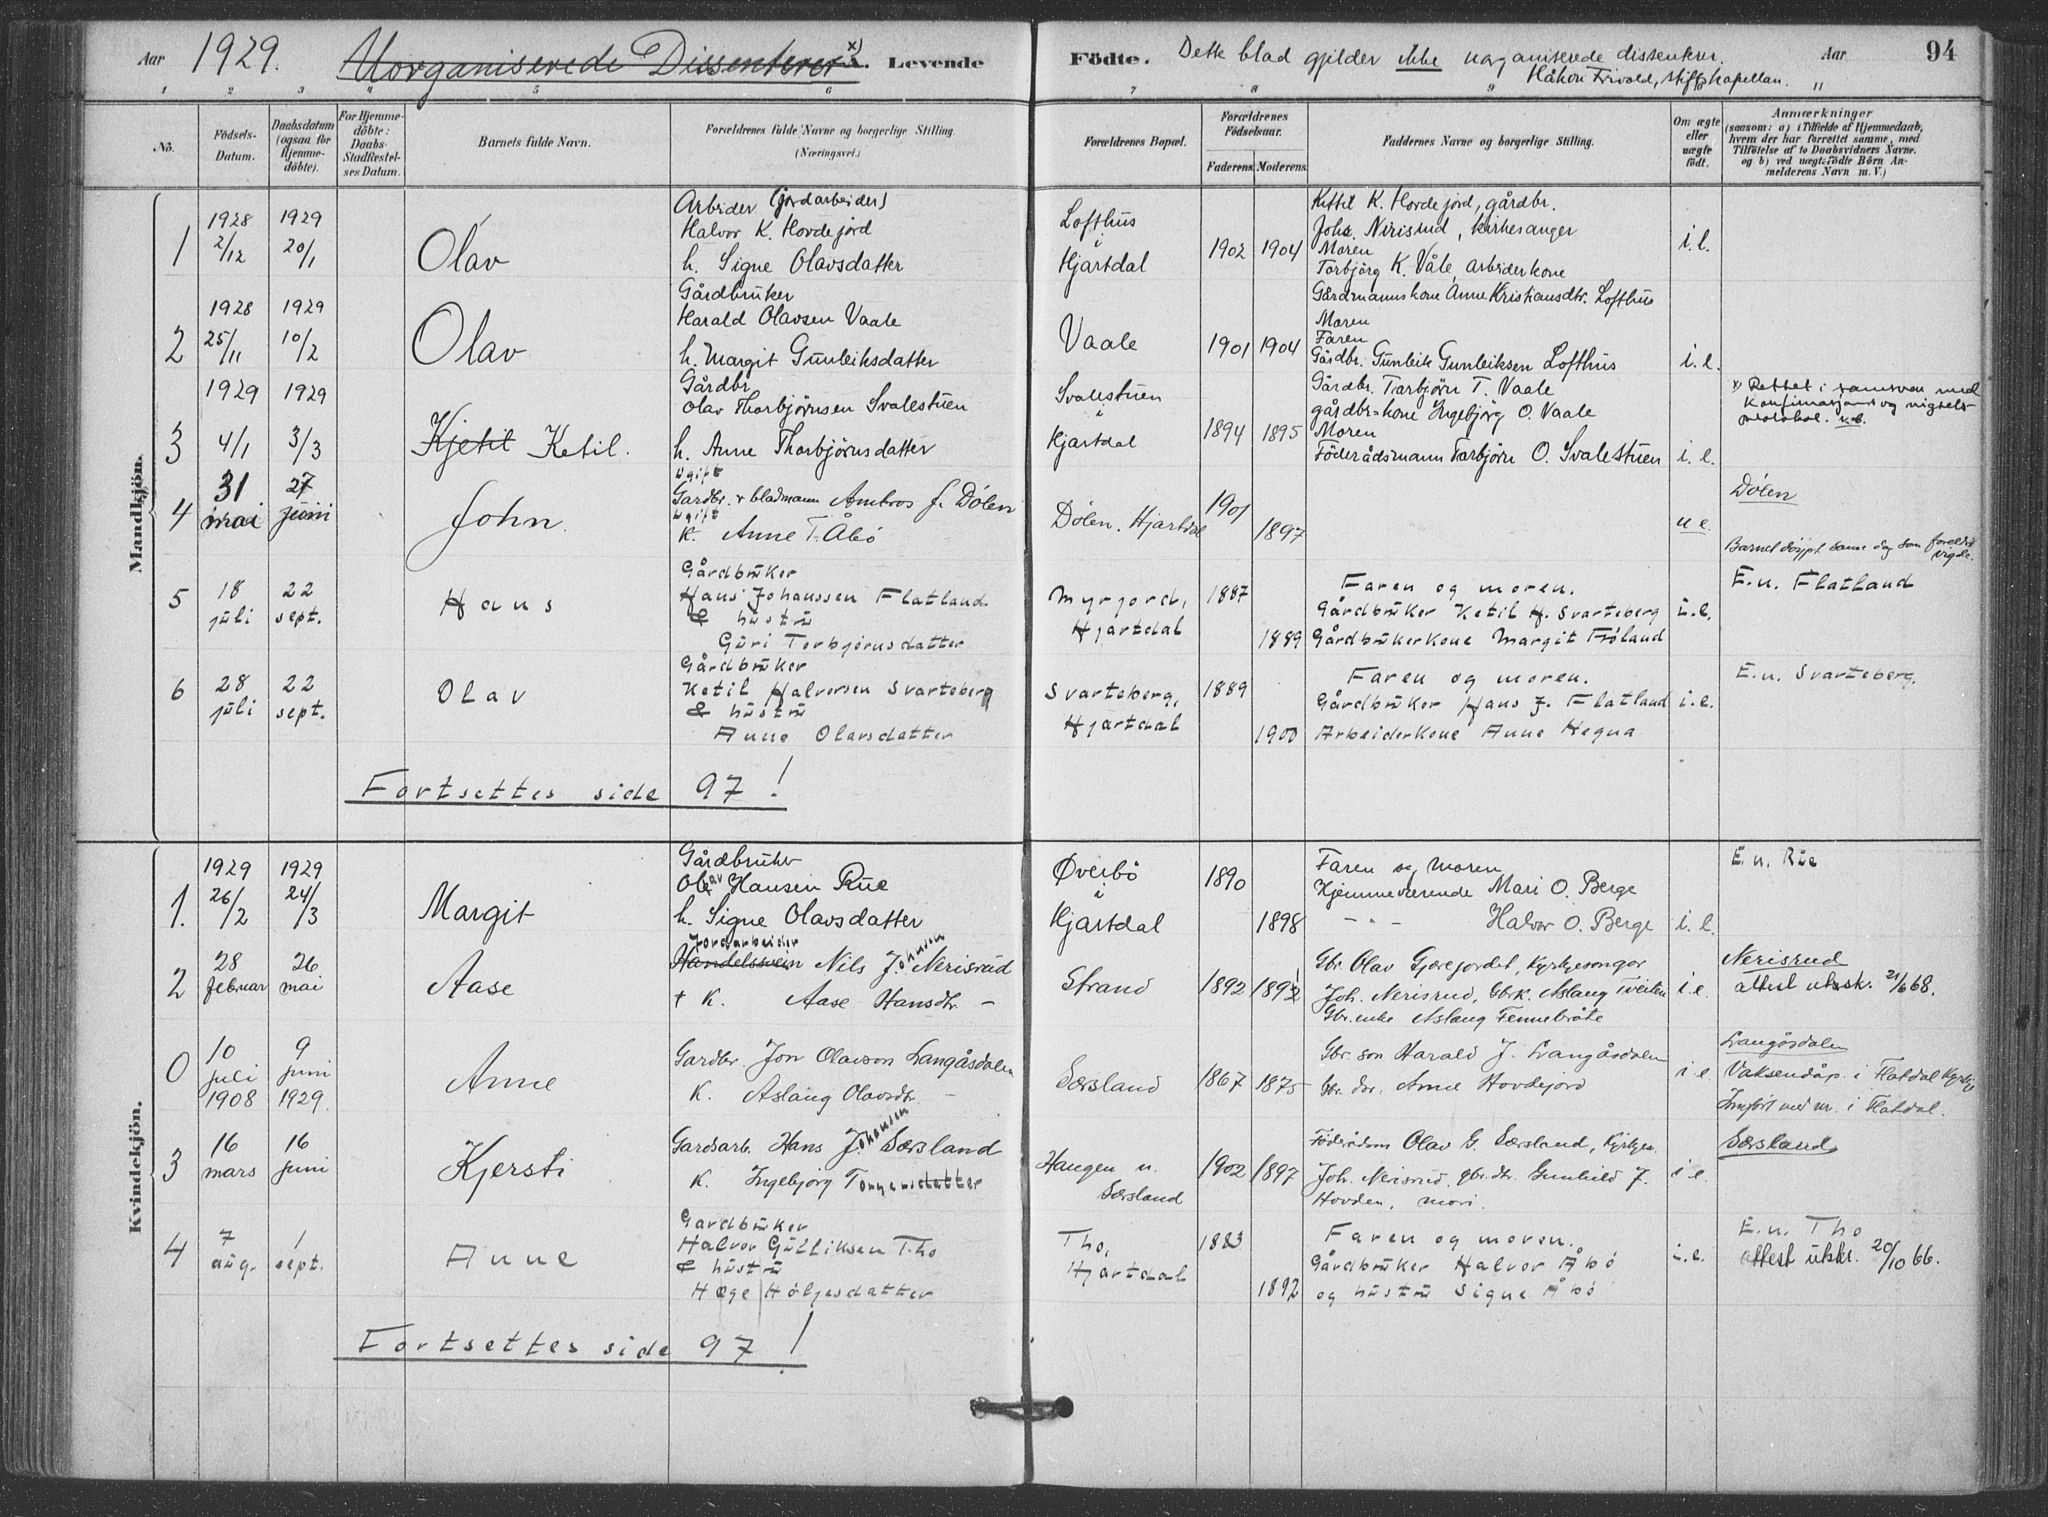 Aar 1929. Uorganiserede Dissenterer x) A. Levende Födte. Dette blad gjelder ikke uorganiserede dissenterer. Aar 94
Håkon Trivold, stiftskapellan.
1 2 3 4 5 6 7 8 9 10 11
No. Födsels-Datum. Daabsdatum (ogsaa for Hjemme-döbte). For Hjemme-döbte: Daabs-Stadfæstel-ses Datum. Barnets fulde Navn. Forældrenes fulde Navne og borgerlige Stilling (Næringsvei.) Forældrenes Bopæl. Forældrenes Födselsaar. Faderens. Moderens. Faddernes Navne og borgerlige Stilling. Om ægte eller uægte födt. Anmærkninger (saasom: a) i Tilfælde af Hjemmedaab, hvem der har forrettet samme, med Tilföielse af to Daabsvidners Navne. og b) ved uægte födte Börn An-melderens Navn m. V.)
Mandkjön.
Arbeider (jordarbeider) Kittil K. Hovdejord, gårdbr.
1928 1929 Halvor K. Hovdejord Lofthus Johs. Nerisrud, kirkesanger
1 2/12 20/1 Olav i 1902 1904 Moren i.l.
h. Signe Olavsdatter Hjartdal Torbjörg K. Våle, arbeiderkone
Gårdbruker Gårdmannskone Anne Kristiansdtr. Lofthus
1928 1929 Harald Olavsen Vaale Moren
2 25/11 10/2 Olav Vaale 1901 1904 Faren
h. Margit Gunleiksdatter Gårdbr. Gunleik Gunleiksen Lofthus i.e.
1929 1929 Gårdbr. Svalestuen Gårdbr. Tarbjörn T. Vaale x) Rettet i samsvar med
Olav Thorbjörnsen Svalestuen i gårdbr-kone Ingebjörg O. Vaale konfirmasjons og vigsels-
3 4/1 3/3 Kjetil Ketil. Hjartdal 1894 1895 Moren protokol.
h. Anne Thorbjörnsdatter Föderådsmann Tarbjörn O. Svalestuen i.e.
Ugift
31 27 Gardbr. & bladmann Ambros J. Dölen 1901 Dölen
4 mai juni John. Ugift Dölen, Hjartdal u e.
K. Anne T. Åbö 1897
Barnet döypt same dag som foreldri vigde.
5 18 22 Hans Gårdbruker Myrjord, 1887 Faren og moren. E.n. Flatland
juli sept. Hans Johanssen Flatland Hjartdal Gårdbruker Ketil H. Svarteberg i.e.
& hustru
Guri Torbjörnsdatter 1889 Gårdbrukerkone Margit Fröland
Gårdbruker
6 28 22 Olav Ketil Halvorsen Svarteberg Svarteberg, 1889 Faren og moren. E.n. Svarteberg.
juli sept. & hustru Hjartdal Gårdbruker Hans J. Flatland i.e.
Anne Olavsdatter 1900 Arbeiderkone Anne Hegna
Fortsettes side 97!
Kvindekjön.
1929 1929 Gårdbruker Överbö 1890 Faren og moren E.n. Rue
1. 26/2 24/3 Margit Olav Hansen Rue i Hjemmeværende Mari O. Berge
h. Signe Olavsdatter Hjartdal 1898 - - Halvor O. Berge i.l.
Jordarbeider
2 28 26 Aase Handelssvein Nils Johansen Nerisrud Strand 1892 1892 Gbr. Olav Gjærejordet, Kyrkjesongar Nerisrud
februar mai + K. Aase Hansdtr. - Joh. Nerisrud, Gbrk. Aslaug Tveiten i e. attest utskr. 21/6 68.
Gbr.enke Aslaug Tennebråte
0 10 9 Anne Gardbr. Jon Olavson Langåsdalen Særsland 1867 1875 Gbr son Harald J. Langåsdalen i e Langåsdalen
juli juni K. Aslaug Olavsdtr. - Gbr. dtr. Anne Hovdejord Vaksendåp. i Flatdal Kyrkje
1908 1929. Innfört med nr. i Flatdal.
3 16 16 Kjersti Gardsarb. Hans Johansen Særsland Haugen u. 1902 1897 Föderådsm Olav G. Særsland, Kyrkjes. Særsland
mars juni K. Ingebjörg Torgersdatter Særsland Joh. Nerisrud, gbr.dtr. Gunhild J. i e.
Hovden, mori.
Gardbruker
4 7 1 Anne Halvor Gulliksen Tho Tho, 1883 Faren og moren. E.n. Tho
aug. sept. & hustru Hjartdal Gårdbruker Halvor Åbö i.e. attest utskr. 20/10 66.
Hæge Höljesdatter 1892 og hustru Signe Åbö
Fortsettes side 97!